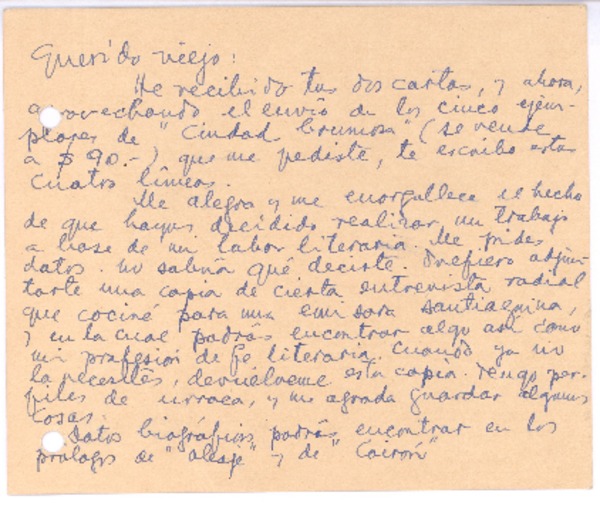 Querido viejo:
He recibido tus dos cartas, y ahora,
aprovechando el envío de los cinco ejem-
plares de "Ciudad brumosa" (se vende
a $ 90.-) que me pediste, te escribo estas
cuatro líneas.
Me alegra y me enorgullece el hecho
de que hayas decidido realizar un trabajo
a base de mi labor literaria. Me pides
datos. No sabría qué decirte. Prefiero adjun-
tarte una copia de cierta entrevista radial
que cociné para una emisora santiaguina,
y en la cual podrás encontrar algo así como
mi profesión de fe literaria. Cuando ya no
la necesites, devuélveme esta copia. Tengo per-
files de urraca, y me agrada guardar algunas
cosas.
Datos biográficos podrás encontrar en los
prólogos de "Oleaje" y de "Coirón"